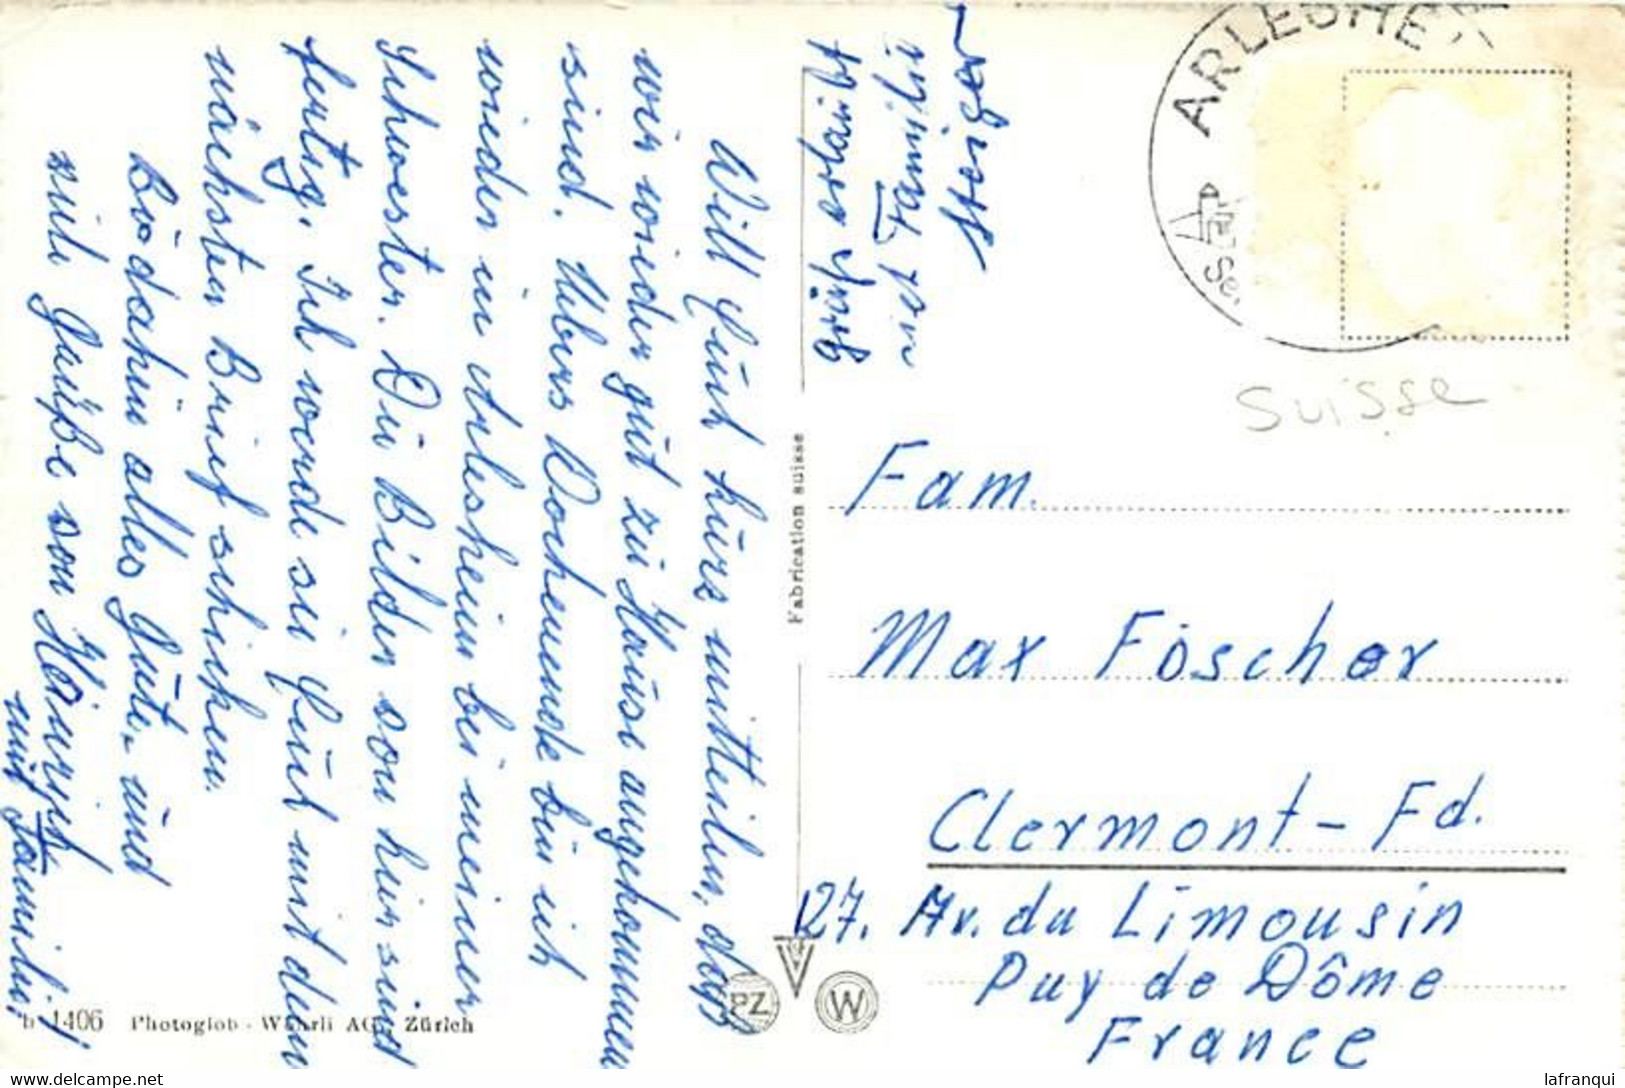 Will Euch kurz mitteilen, daß
wir wieder gut zu Hause angekommen
sind. Übers Wochenende bin ich
wieder in Arlesheim bei meiner
Schwester. Die Bilder von hier sind
fertig. Ich werde sie Euch mit dem
nächsten Brief schicken.
Bis dahin alles Gute und
viele Grüße von Heinrich
mit Familie.
Gruß
und Familie
ARLESHEI
Se.
Suisse
Fam.
Max Foscher
Clermont-Fd.
27. Av. du Limousin
Puy de Dôme
France
Fabrication suisse
PZ
W
b 1406 Photoglob-Wehrli AG, Zürich
lafranqui